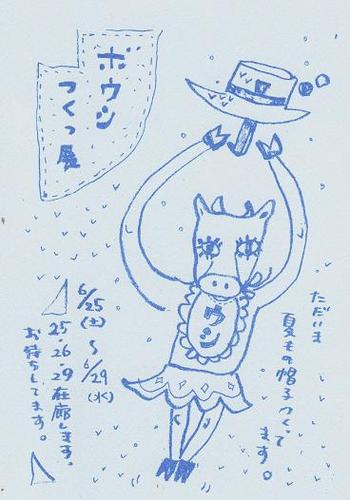 ボウシ
つくっ展
ウシ
ただいま
夏もの帽子つくって
ます。
6/25
(土)
〜
6/29
(水)
25・26・29在廊します。
お待ちしてます。